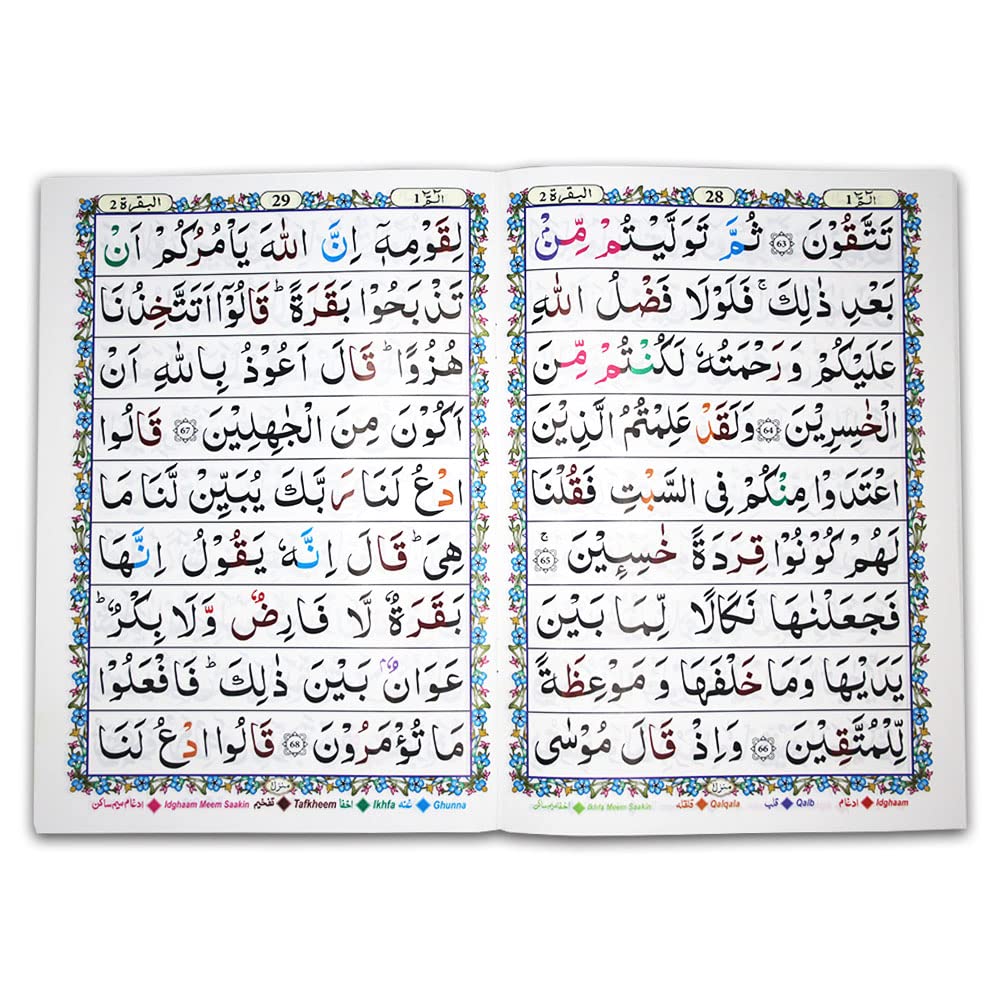 الٓمّٓ 1
28
البقرة 2
تَتَّقُوْنَ ﴿63﴾ ثُمَّ تَوَلَّيْتُمْ مِّنْۢ
بَعْدِ ذٰلِكَ ۚ فَلَوْلَا فَضْلُ اللّٰهِ
عَلَيْكُمْ وَرَحْمَتُهٗ لَكُنْتُمْ مِّنَ
الْخٰسِرِيْنَ ﴿64﴾ وَلَقَدْ عَلِمْتُمُ الَّذِيْنَ
اعْتَدَوْا مِنْكُمْ فِى السَّبْتِ فَقُلْنَا
لَهُمْ كُوْنُوْا قِرَدَةً خٰسِـِٕيْنَ ۚ ﴿65﴾
فَجَعَلْنٰهَا نَكَالًا لِّمَا بَيْنَ
يَدَيْهَا وَمَا خَلْفَهَا وَ مَوْعِظَةً
لِّلْمُتَّقِيْنَ ﴿66﴾ وَاِذْ قَالَ مُوْسٰى
منزل
Idghaam ادغام Qalb قلب Qalqala قلقله Ikhfa Meem Saakin اخفا میم ساکن
الٓمّٓ 1
29
البقرة 2
لِقَوْمِهٖۤ اِنَّ اللّٰهَ يَاْمُرُكُمْ اَنْ
تَذْبَحُوْا بَقَرَةً ؕ قَالُوْۤا اَتَتَّخِذُنَا
هُزُوًا ؕ قَالَ اَعُوْذُ بِاللّٰهِ اَنْ
اَكُوْنَ مِنَ الْجٰهِلِيْنَ ﴿67﴾ قَالُوا
ادْعُ لَنَا رَبَّكَ يُبَيِّنْ لَّنَا مَا
هِىَ ؕ قَالَ اِنَّهٗ يَقُوْلُ اِنَّهَا
بَقَرَةٌ لَّا فَارِضٌ وَّلَا بِكْرٌ ؕ
عَوَانٌۢ بَيْنَ ذٰلِكَ ؕ فَافْعَلُوْا
مَا تُؤْمَرُوْنَ ﴿68﴾ قَالُوا ادْعُ لَنَا
منزل
Ghunna غنه Ikhfa اخفا Tafkheem تفخیم Idghaam Meem Saakin ادغام میم ساکن